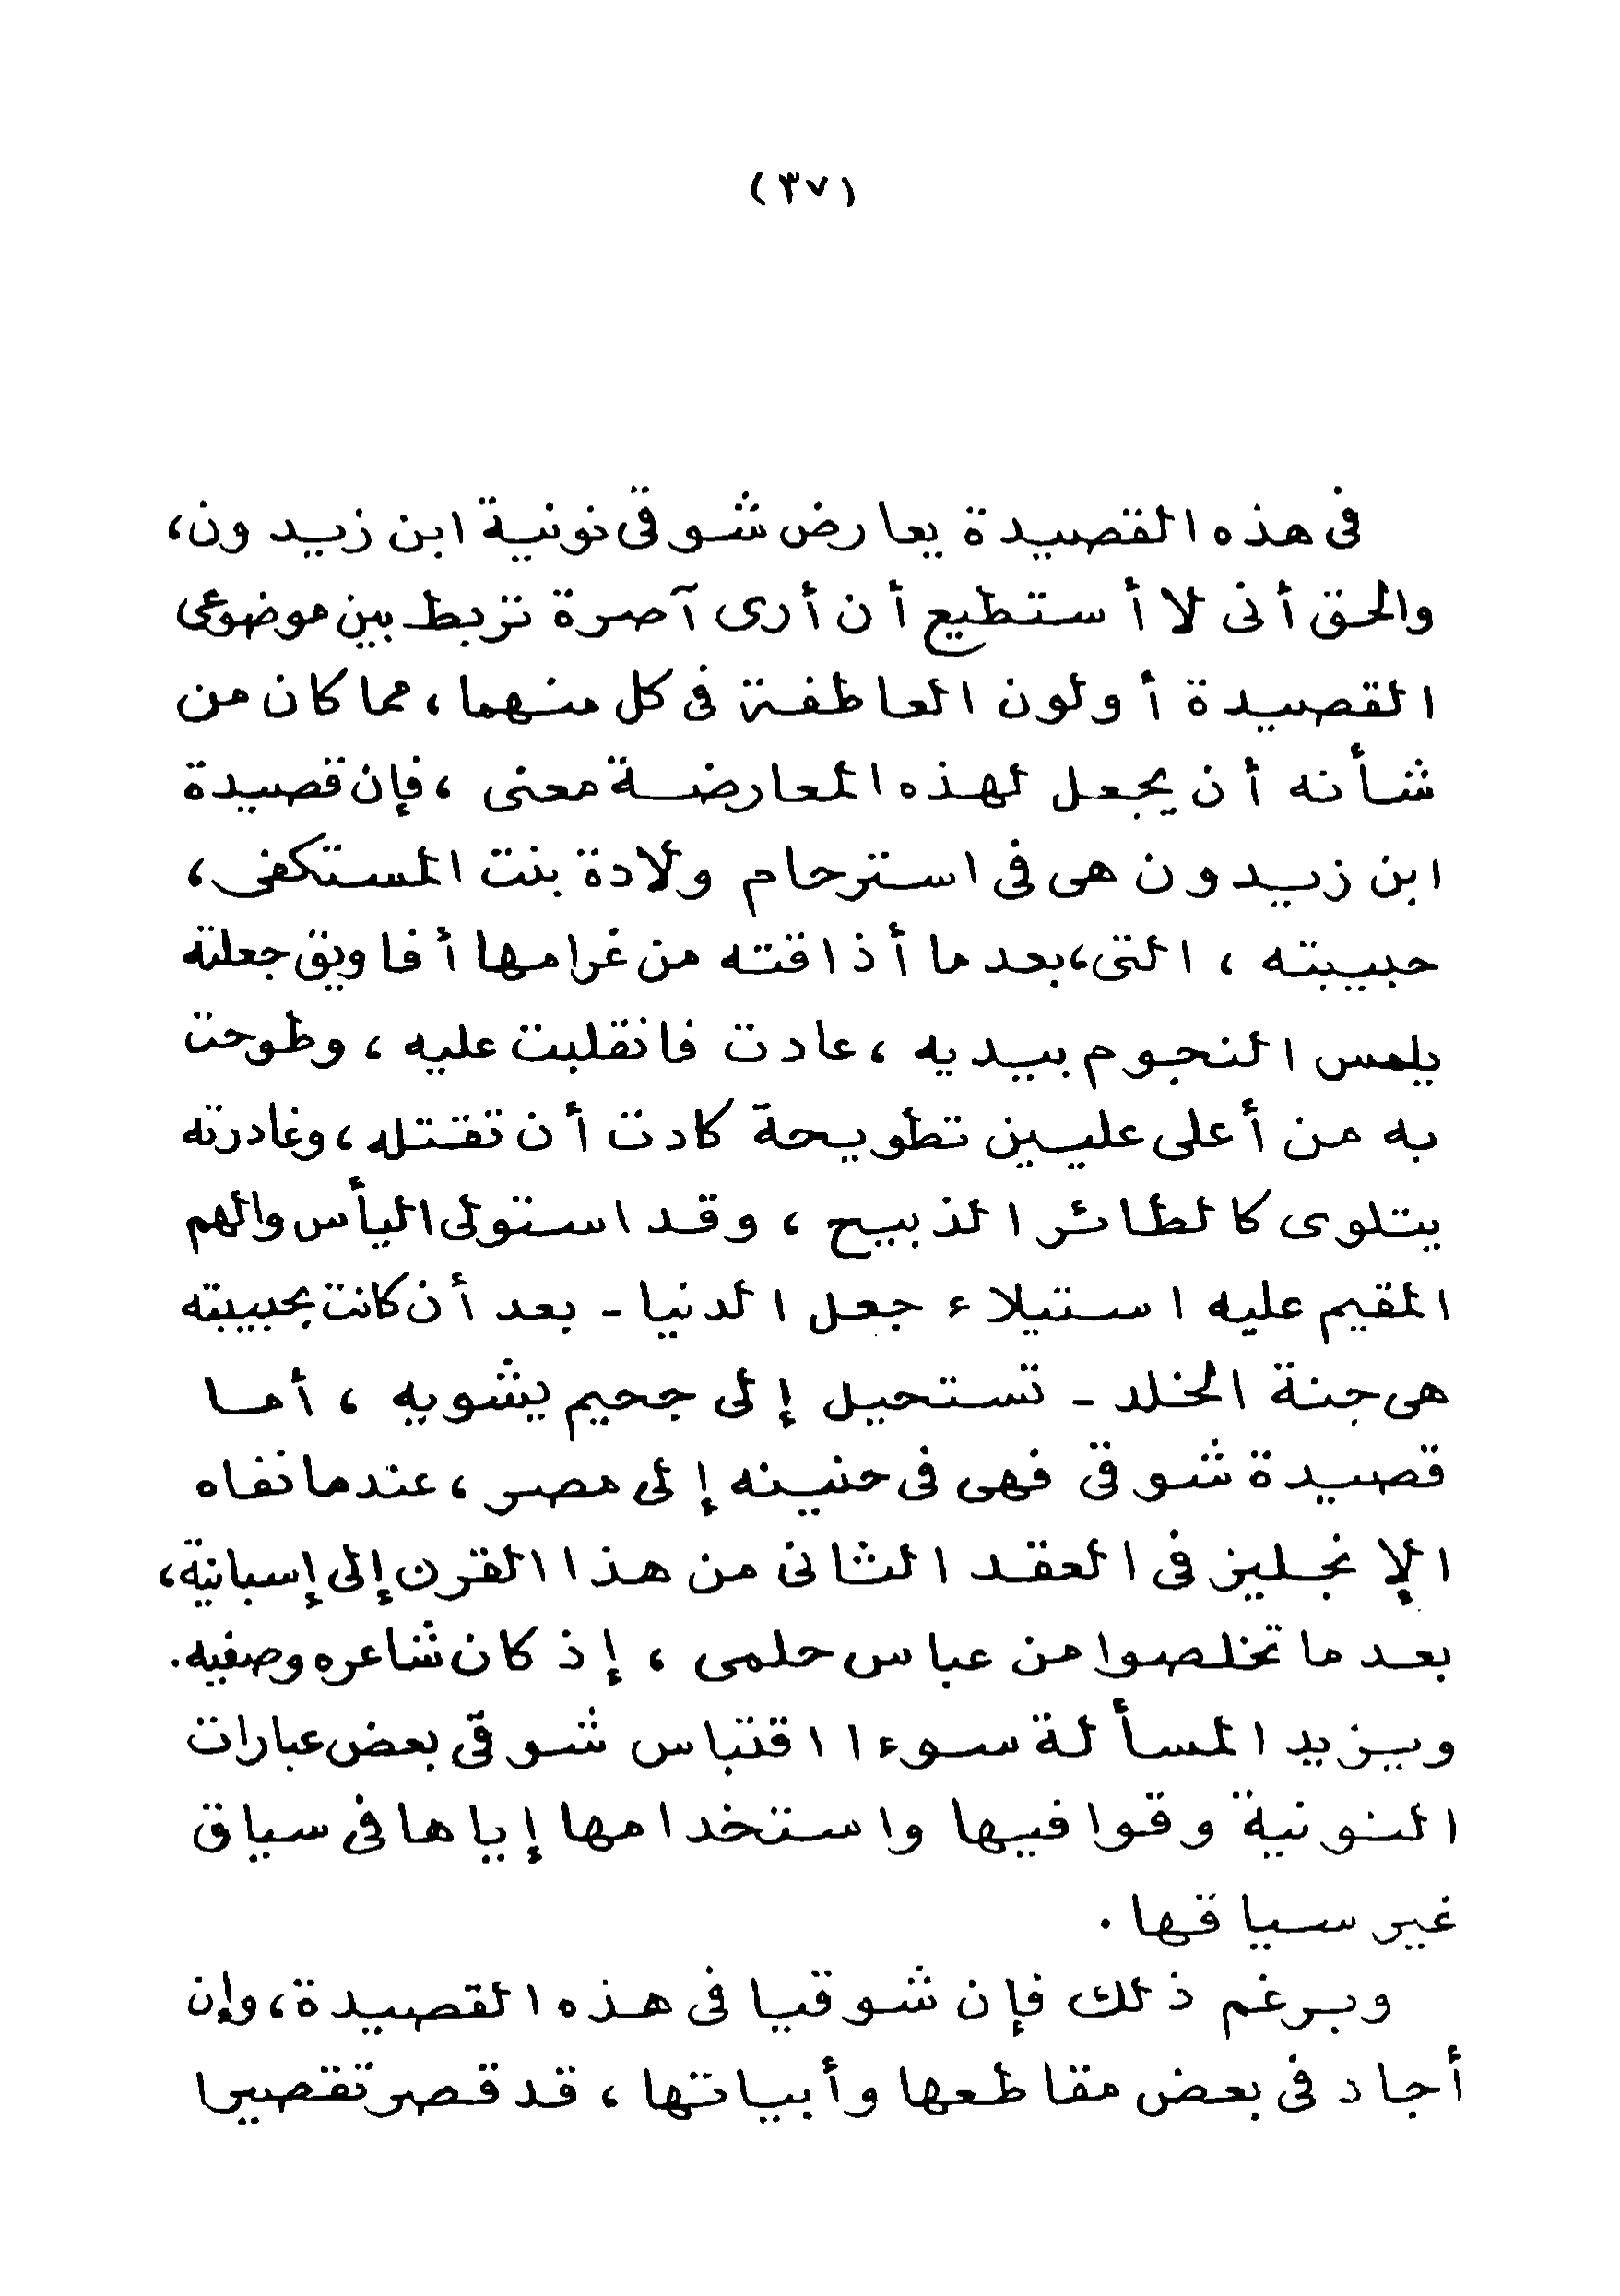 (٣٧)
فى هذه القصيدة يعارض شوقى نونية ابن زيدون،
والحق أنى لا أستطيع أن أرى آصرة تربط بين موضوعى
القصيدة أولون العاطفة فى كل منهما، مما كان من
شأنه أن يجعل لهذه المعارضة معنى، فإن قصيدة
ابن زيدون هى فى استرحام ولادة بنت المستكفى،
حبيبته، التى، بعد ما أذاقته من غرامها أفاويق جعلته
يلمس النجوم بيديه، عادت فانقلبت عليه، وطوحت
به من أعلى عليين تطويحة كادت أن تقتله، وغادرته
يتلوى كالطائر الذبيح، وقد استولى اليأس والهم
المقيم عليه استيلاء جعل الدنيا - بعد أن كانت بحبيبته
هى جنة الخلد - تستحيل إلى جحيم يشويه، أما
قصيدة شوقى فهى فى حنينه إلى مصر، عندما نفاه
الإنجليز فى العقد الثانى من هذا القرن إلى إسبانية،
بعد ما تخلصوا من عباس حلمى، إذ كان شاعره وصفيه.
ويزيد المسألة سوءا اقتباس شوقى بعض عبارات
النونية وقوافيها واستخدامها إياها فى سياق
غير سياقها.
وبرغم ذلك فإن شوقيا فى هذه القصيدة، وإن
أجاد فى بعض مقاطعها وأبياتها، قد قصر تقصيرا